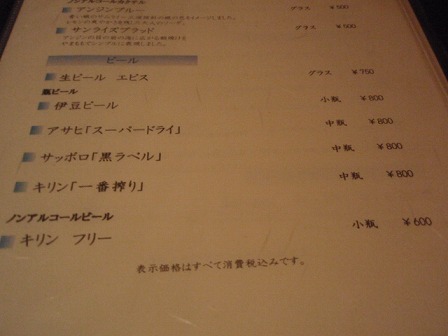 ノンアルコールカクテル
アンジンブルー グラス ¥600
サンライズブラッド グラス ¥600
ビール
生ビール エビス グラス ¥750
瓶ビール
伊豆ビール 小瓶 ¥800
アサヒ「スーパードライ」 中瓶 ¥800
サッポロ「黒ラベル」 中瓶 ¥800
キリン「一番搾り」 中瓶 ¥800
ノンアルコールビール
キリン フリー 小瓶 ¥600
表示価格はすべて消費税込みです。